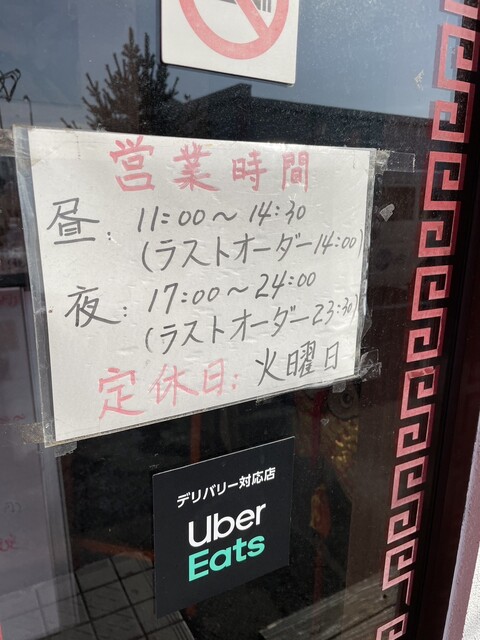 営業時間
昼: 11:00～14:30
(ラストオーダー14:00)
夜: 17:00～24:00
(ラストオーダー23:30)
定休日: 火曜日
デリバリー対応店
Uber
Eats